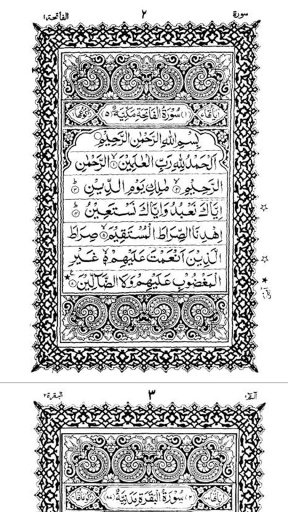 سورة ٢ الفاتحة ١
سُوْرَةُ الْفَاتِحَةِ مَكِّيَّةٌ
بِسْمِ اللهِ الرَّحْمٰنِ الرَّحِيْمِ
اَلْحَمْدُ لِلّٰهِ رَبِّ الْعٰلَمِيْنَ ۙ﴿١﴾ الرَّحْمٰنِ
الرَّحِيْمِ ۙ﴿٢﴾ مٰلِكِ يَوْمِ الدِّيْنِ ؕ﴿٣﴾
اِيَّاكَ نَعْبُدُ وَاِيَّاكَ نَسْتَعِيْنُ ؕ﴿٤﴾
اِهْدِنَا الصِّرَاطَ الْمُسْتَقِيْمَ ۙ﴿٥﴾ صِرَاطَ
الَّذِيْنَ اَنْعَمْتَ عَلَيْهِمْ ۙ۬﴿٦﴾ غَيْرِ
الْمَغْضُوْبِ عَلَيْهِمْ وَلَا الضَّآلِّيْنَ ﴿٧﴾
٣ البقرة ٢
سُوْرَةُ الْبَقَرَةِ مَدَنِيَّةٌ